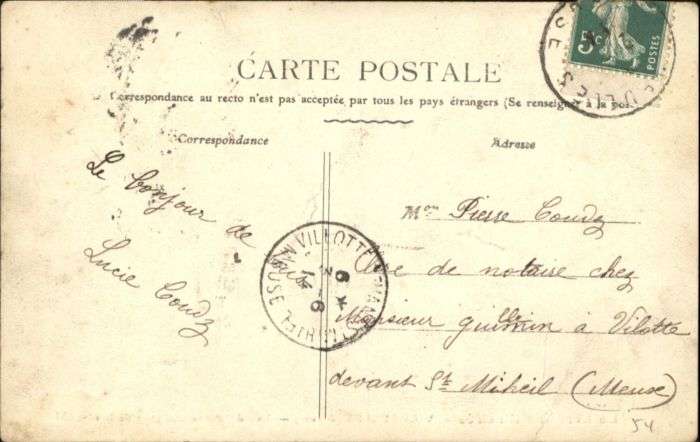 5c
POSTES
CARTE POSTALE
Correspondance au recto n'est pas acceptée par tous les pays étrangers (Se renseigner à la poste)
Correspondance
Adresse
Le bonjour de
Lucie Coudz
Mon Pierre Coudz
de notaire chez
Monsieur guillemin à Vilotte
devant St Mihiel (Meuse)
VILLOTTE DEVANT ST MIHIEL MEUSE
54